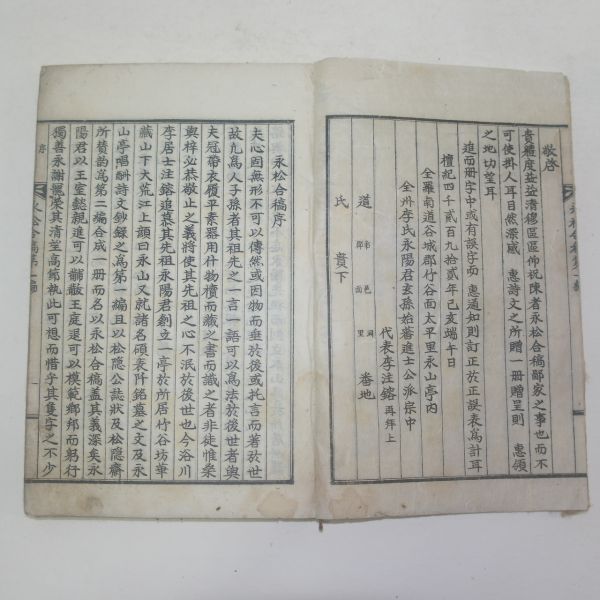 敬啓
貴體度益益清穆區區仰祝陳者永松合稿鄙家之事也而不
可使掛人耳目然深感 惠詩文之所贈一册贈呈則 惠領
之地切望耳
進而册字中或有誤字而 惠通知則訂正於正誤表爲計耳
檀紀四千貳百九拾貳年己亥端午日
全羅南道谷城郡竹谷面太平里永山亭內
全州李氏永陽君玄孫始菴進士公派宗中
代表李注鎔 再拜上
道 市郡 邑面 洞里 番地
氏 貴下
永松合稿序
夫心固無形不可以傳然或因物而垂於後或托言而著於世
故凡爲人子孫者其祖先之一言一語可以爲法於後世者與
夫冠帶衣履平素器用什物櫝而藏之書而識之者非徒惟桑
與梓必恭敬止之義將使其先祖之心不泯於後世也今浴川
李居士注鎔追慕其先祖永陽君創立一亭於所居竹谷坊華
藏山下大荒江上顔曰永山又就諸名碩表阡銘墓之文及永
山亭唱酬詩文鈔錄之爲第一編且以松隱公誌狀及松隱齋
所贊韵爲第二編合成一册而名以永松合稿盖其義深矣永
陽君以王室懿親進可以黼黻王庭退可以模範鄉邦而躬行
獨善永謝攏榮其清芬高節執此可想而惜乎其隻字之不少
序
永松合稿第一編
一